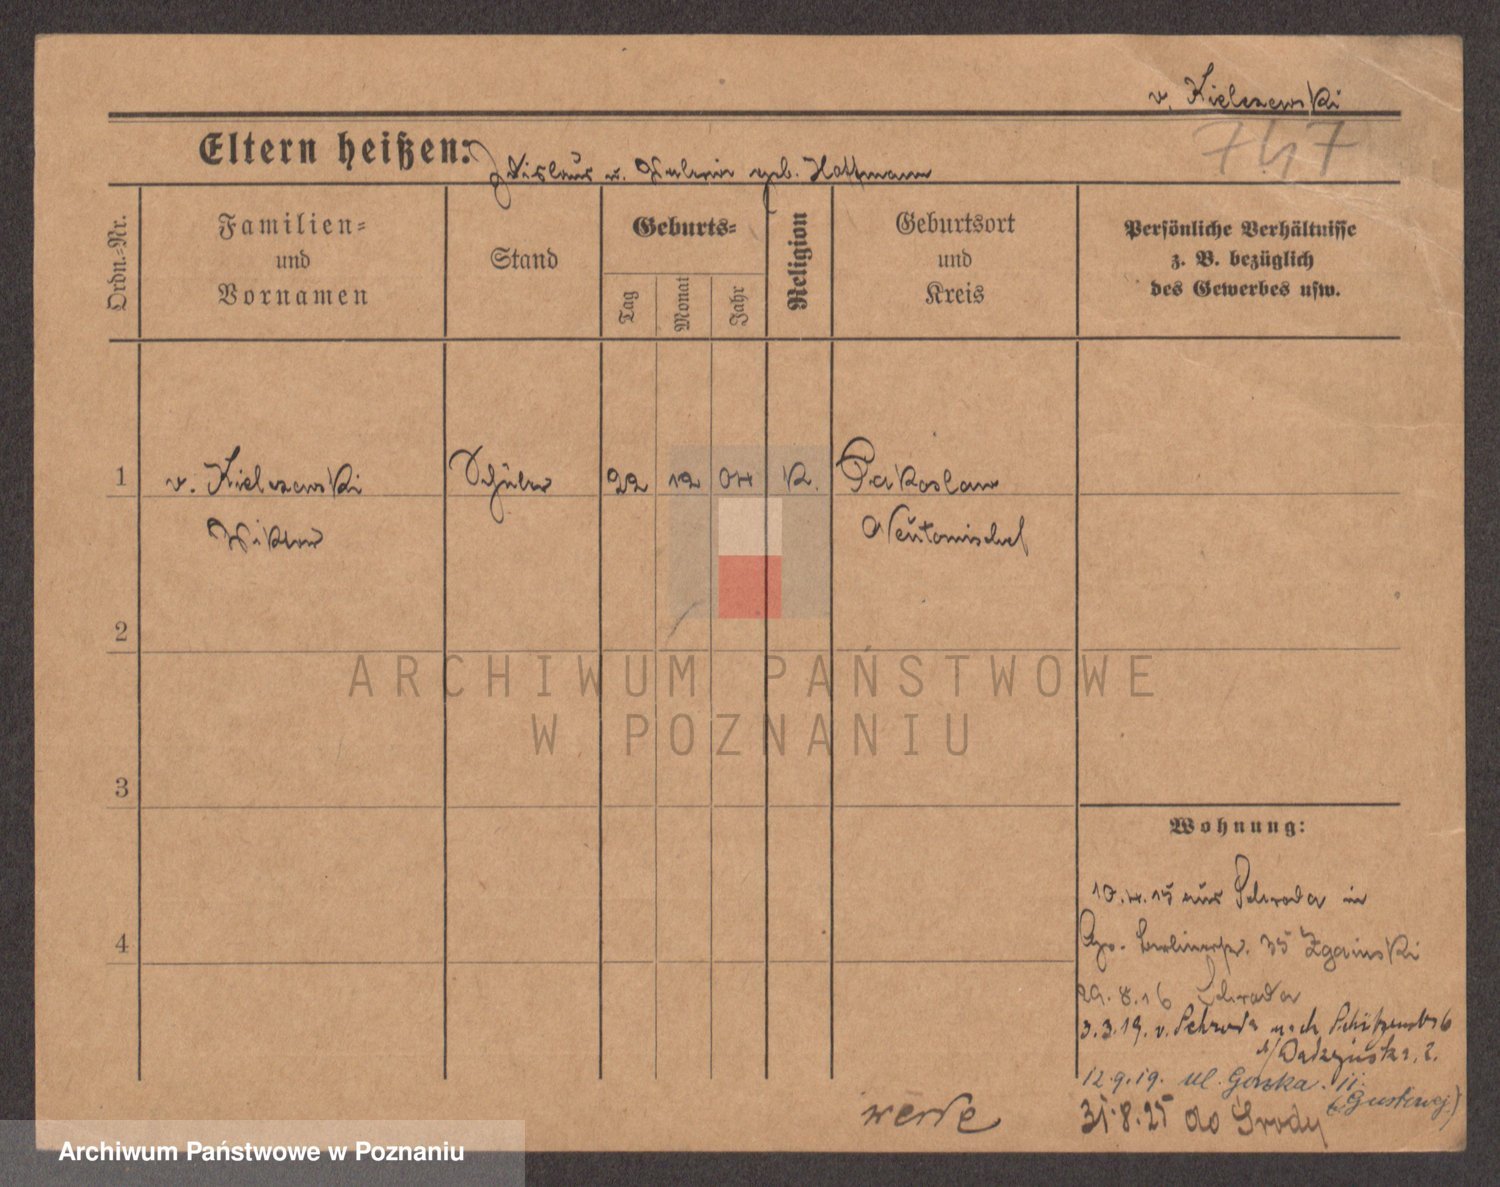 v. Kielczewski
747
Eltern heißen: Zdislaus u. Valerie geb. Hoffmann
Ordn.-Nr.
Familien-
und
Vornamen
Stand
Geburts-
Tag
Monat
Jahr
Religion
Geburtsort
und
Kreis
Persönliche Verhältnisse
z. B. bezüglich
des Gewerbes usw.
1 v. Kielczewski Schüler 22 12 04 K. Pakoslaw
Wiktor Neutomischel
2
3
4
Wohnung:
10.4.15 aus Schroda in
Berlinerstr. 35 Zgainski
29.8.16 Schroda
3.3.19. v. Schroda nach 6
b/ 2.
12.9.19. ul. Górska. 11.
31.8.25 do Środy
werte
ARCHIWUM PAŃSTWOWE
W POZNANIU
Archiwum Państwowe w Poznaniu